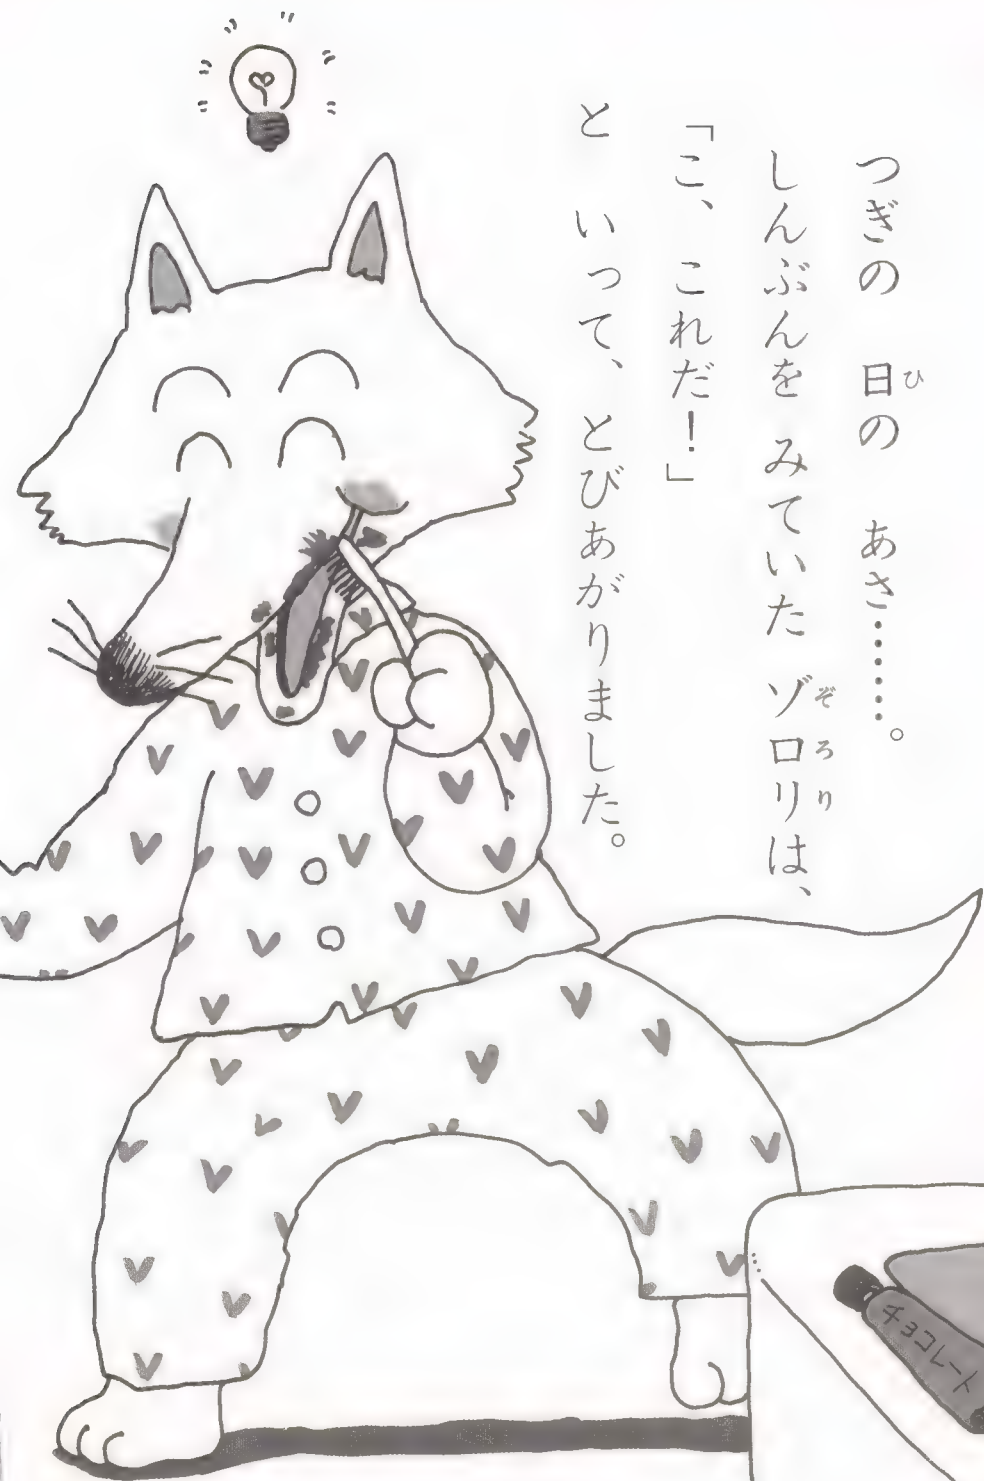 つぎの 日の あさ‥‥‥。
しんぶんを みていた ゾロリは、
「こ、これだ!」
と いって、とびあがりました。
チョコレート